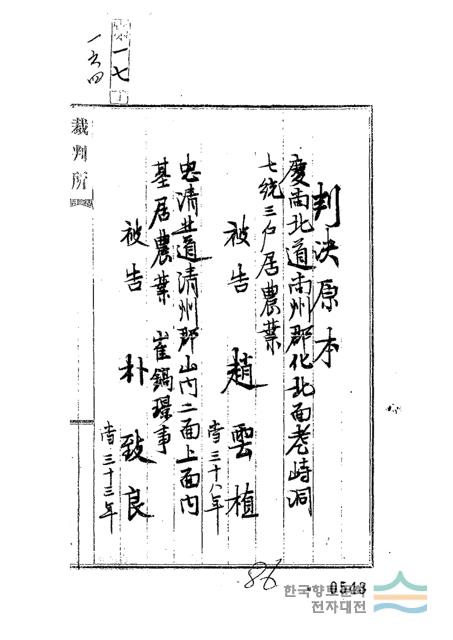 判決原本
慶尙北道尙州郡化北面老峙洞
七統三戶居農業
被告 趙雲植
當三十八年
忠淸北道淸州郡山內二面上面內
基居農業 崔鎬璟事
被告 朴致良
當三十三年
裁判所
一七
一六四
86
0543
한국향토문화
전자대전